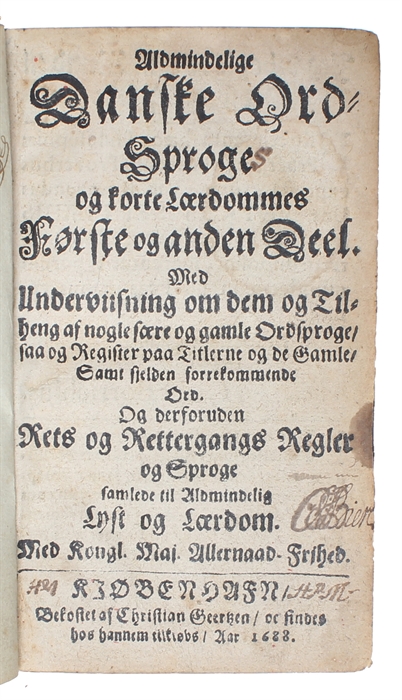 Aldmindelige
Danske Ord-
Sproges
og korte Lærdommes
Første og anden Deel.
Med
Underviisning om dem og Til-
heng af nogle sære og gamle Ordsproge/
saa og Register paa Titlerne og de Gamle/
Samt sielden forrekommende
Ord.
Og derforuden
Rets og Rettergangs Regler
og Sproge
samlede til Aldmindelig
Lyst og Lærdom.
Med Kongl. Maj. Allernaad. Frihed.
KIØBENHAFN/
Bekostet af Christian Geertzen/ oc findes
hos hannem tilkiøbs/ Aar 1688.